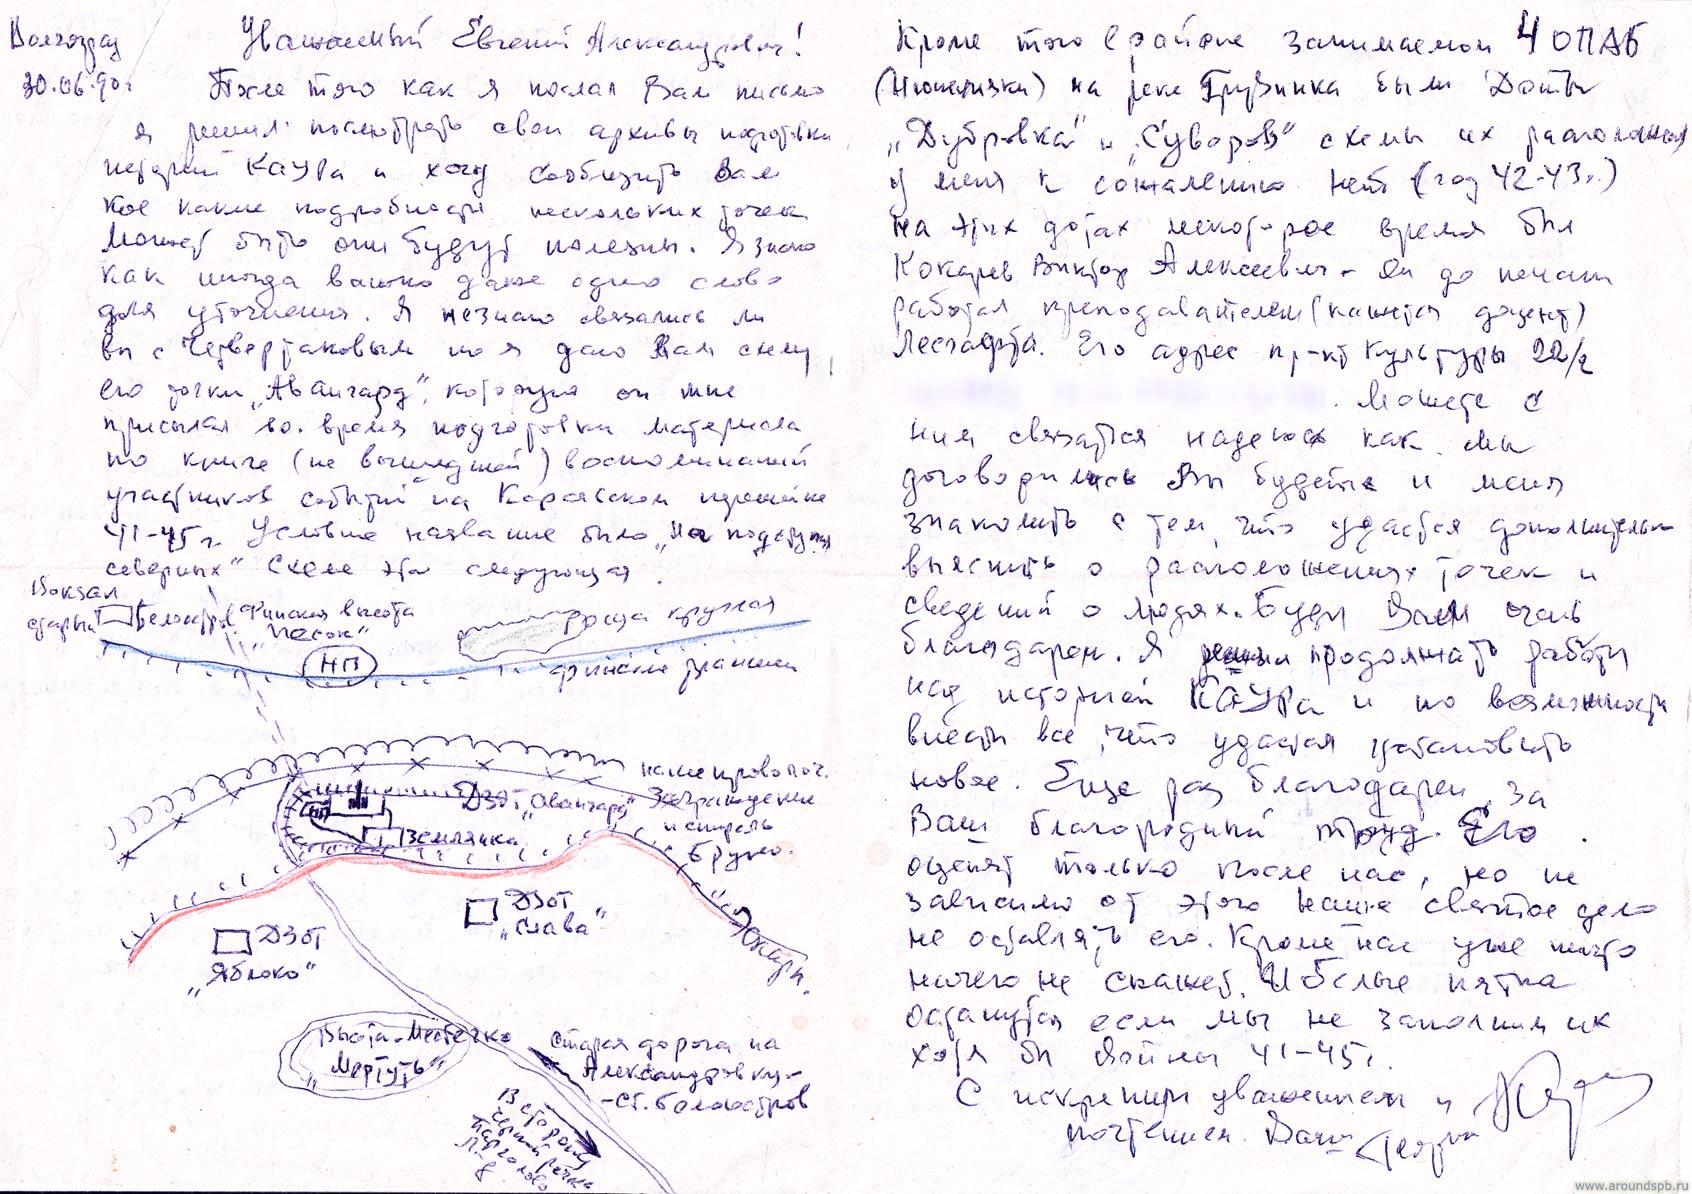 Волгоград
30.06.90г.
Уважаемый Евгений Александрович!
После того как я послал Вам письмо
я решил посмотреть свои архивы подготовки
истории КАУРа и хочу сообщить Вам
кое какие подробности нескольких точек
Может быть они будут полезны. Я знаю
как иногда важно даже одно слово
для уточнения. Я незнаю связались ли
вы с Четвертаковым но я даю Вам схему
его точки „Авангард", которую он мне
присылал во время подготовки материала
по книге (не вышедшей) воспоминаний
участников событий на Карельском перешейке
41-45г. Условное название было „На подступах
северных" Схема эта следующая.
Вокзал
старый
Белоостров
Финская высота
„Песок"
НП
Роща круглая
финские траншеи
наше провол. оч.
заграждение
и спираль
Бруно.
ДЗОТ „Авангард"
НП
Землянка
ДЗОТ
„Слава"
ДЗОТ
„Яблоко"
Высота-Местечко
„Мертуть"
Старая дорога на
Александровку-
-ст. Белоостров
В сторону
Черной речки
Парголово
Л-д
Кроме того в районе занимаемом 4 ОПАБ
на реке Грузинка были Доты
„Дубровка" и „Суворов" схемы их расположения
у меня к сожалению нет (год 42-43г.)
на этих дотах некоторое время был
Кокарев Виктор Алексеевич - он до пенсии
работал преподавателем (кажется доцент)
Лесгафта. Его адрес пр-кт Культуры 22/2
. Можете с
ним связатся надеюсь как мы
договорились Вы будете и меня
знакомить с тем, что удастся дополнительно
выяснить о расположениях точек и
сведений о людях. Буду Вам очень
благодарен. Я решил продолжать работу
над историей КАУРа и по возможности
внести все, что удастся установить
новое. Еще раз благодарен за
Ваш благородный труд. Его
оценят только после нас, но не
зависимо от этого наше святое дело
не оставлять его. Кроме нас уже никто
ничего не скажет. И белые пятна
останутся если мы не заполним их
хотя бы Войны 41-45г.
С искренним уважением и
почтением. Ваш Георгий
www.aroundspb.ru